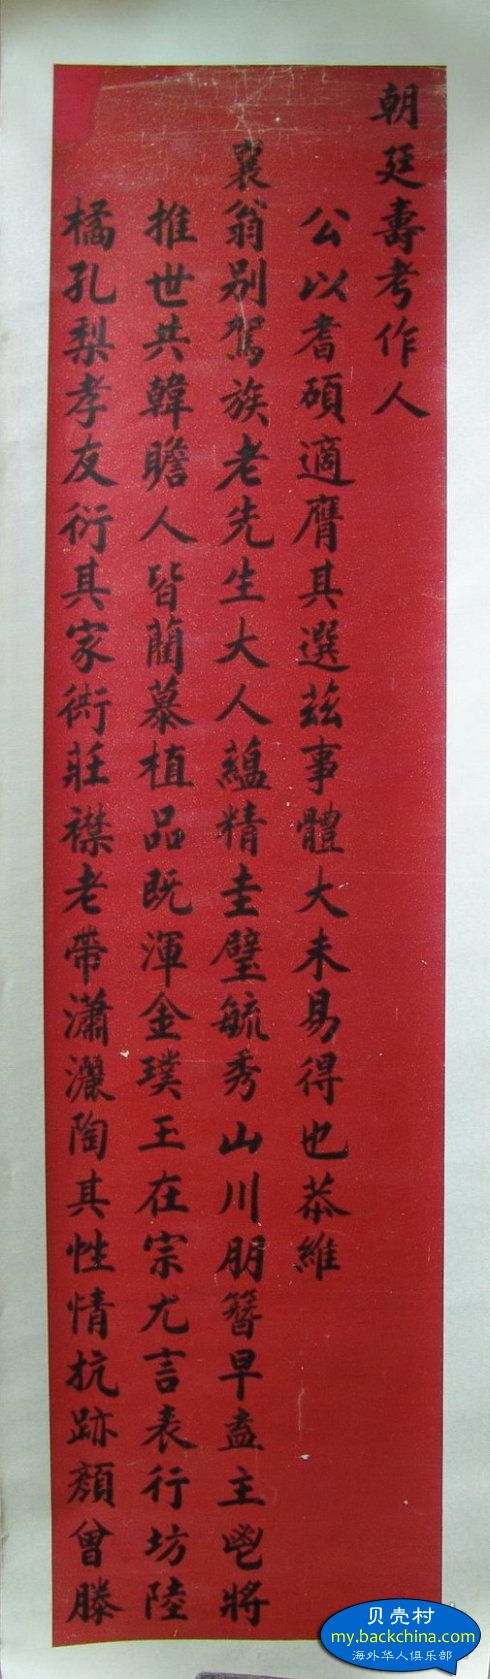 朝廷壽考作人
公以耆碩適膺其選茲事體大未易得也恭維
襄翁别駕族老先生大人蘊精圭璧毓秀山川朋簪早盍主鬯將
推世共韓瞻人皆藺慕植品既渾金璞玉在宗尤言表行坊陸
橘孔梨孝友衍其家衖莊襟老帶瀟灑陶其性情抗跡顏曾滕
贝壳村
my.backchina.com
海外华人俱乐部